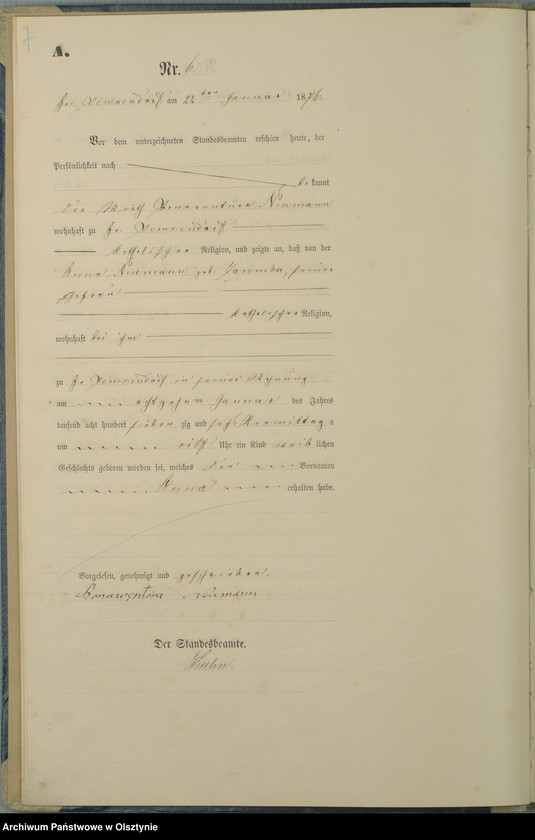 7
A.
Nr. 6.
am 22 ten Januar 1876
Vor dem unterzeichneten Standesbeamten erschien heute, der
Persönlichkeit nach
bekannt
Bonaventura Neumann
wohnhaft zu
katholischer Religion, und zeigte an, daß von der
Anna Neumann geb. seiner
Ehefrau
katholischer Religion,
wohnhaft bei ihm
zu in seiner Wohnung
am achtzehnten Januar des Jahres
tausend acht hundert sieben zig und sechs Vormittag s
um Uhr ein Kind weib lichen
Geschlechts geboren worden sei, welches den Vornamen
Anna erhalten habe.
Vorgelesen, genehmigt und unterschrieben.
Bonawentura Neumann
Der Standesbeamte.
Archiwum Państwowe w Olsztynie